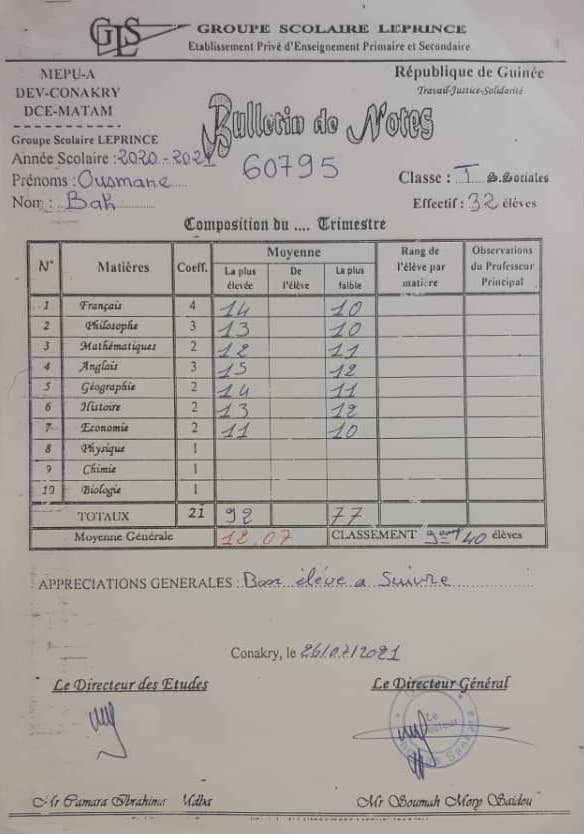 GLS
GROUPE SCOLAIRE LEPRINCE
Etablissement Privé d'Enseignement Primaire et Secondaire
MEPU-A
DEV-CONAKRY
DCE-MATAM
République de Guinée
Travail-Justice-Solidarité
Bulletin de Notes
Groupe Scolaire LEPRINCE
Année Scolaire : 2020 - 2021
60795
Prénoms : Ousmane
Classe : T S.Sociales
Nom : Bah
Effectif : 32 élèves
Composition du .... Trimestre
N° Matières Coeff. Moyenne Rang de l'élève par matière Observations du Professeur Principal
La plus élevée De l'élève La plus faible
1 Français 4 14 10
2 Philosophe 3 13 10
3 Mathématiques 2 12 11
4 Anglais 3 15 12
5 Géographie 2 14 11
6 Histoire 2 13 12
7 Economie 2 11 10
8 Physique 1
9 Chimie 1
10 Biologie 1
TOTAUX 21 92 77
Moyenne Générale 12,07 CLASSEMENT 9eme/40 élèves
APPRECIATIONS GENERALES : Bon élève a Suivre
Conakry, le /2021
Le Directeur des Etudes Le Directeur Général
Le
Mr Camara Ibrahima Mdba Mr Soumah Mory Saidou